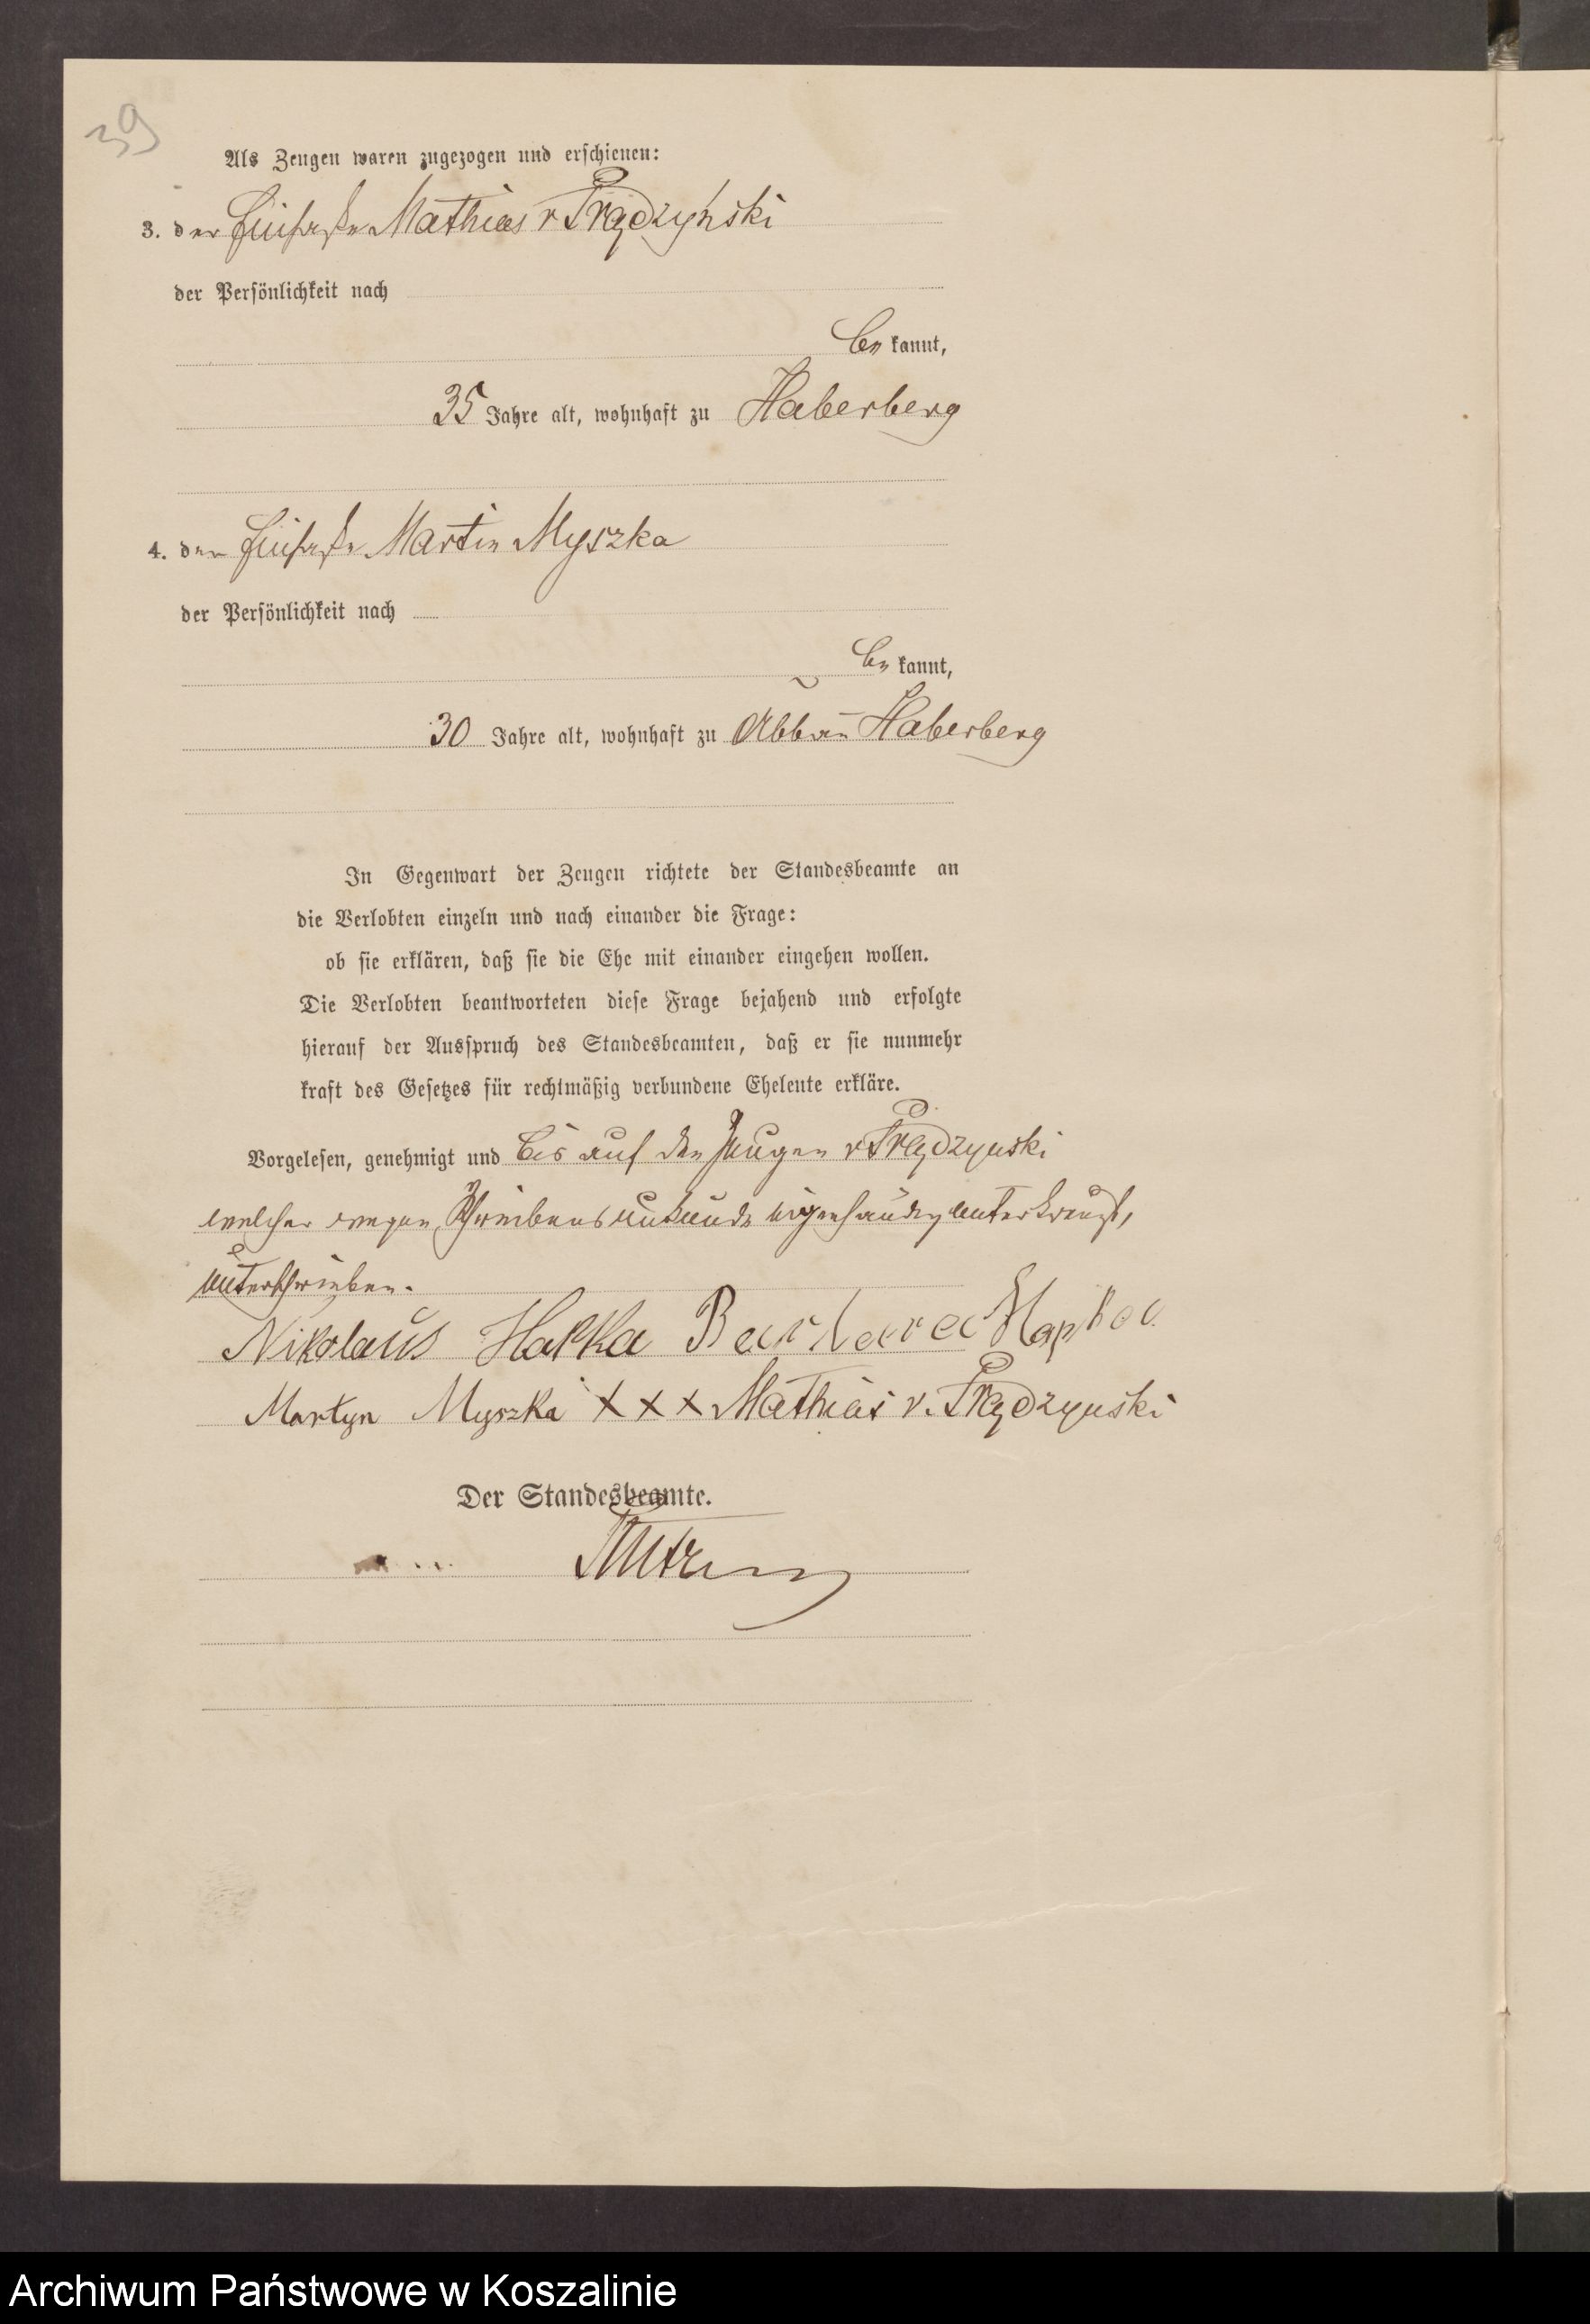 39
Als Zeugen waren zugezogen und erschienen:
3. der Einsasse Mathias v Prądzyński
der Persönlichkeit nach
be kannt,
35 Jahre alt, wohnhaft zu Haberberg
4. der Einsasse Martin Myszka
der Persönlichkeit nach
be kannt,
30 Jahre alt, wohnhaft zu Abbau Haberberg
In Gegenwart der Zeugen richtete der Standesbeamte an
die Verlobten einzeln und nach einander die Frage:
ob sie erklären, daß sie die Ehe mit einander eingehen wollen.
Die Verlobten beantworteten diese Frage bejahend und erfolgte
hierauf der Ausspruch des Standesbeamten, daß er sie nunmehr
kraft des Gesetzes für rechtmäßig verbundene Eheleute erkläre.
Vorgelesen, genehmigt und bis auf den Zeugen v Prądzynski
welcher wegen Schreibensunkunde eigenhändig unterkreuzt,
unterschrieben.
Nikolaus Hapka Barbara Hapka
Martyn Myszka X X X Mathias v. Prądzynski
Der Standesbeamte.
Archiwum Państwowe w Koszalinie